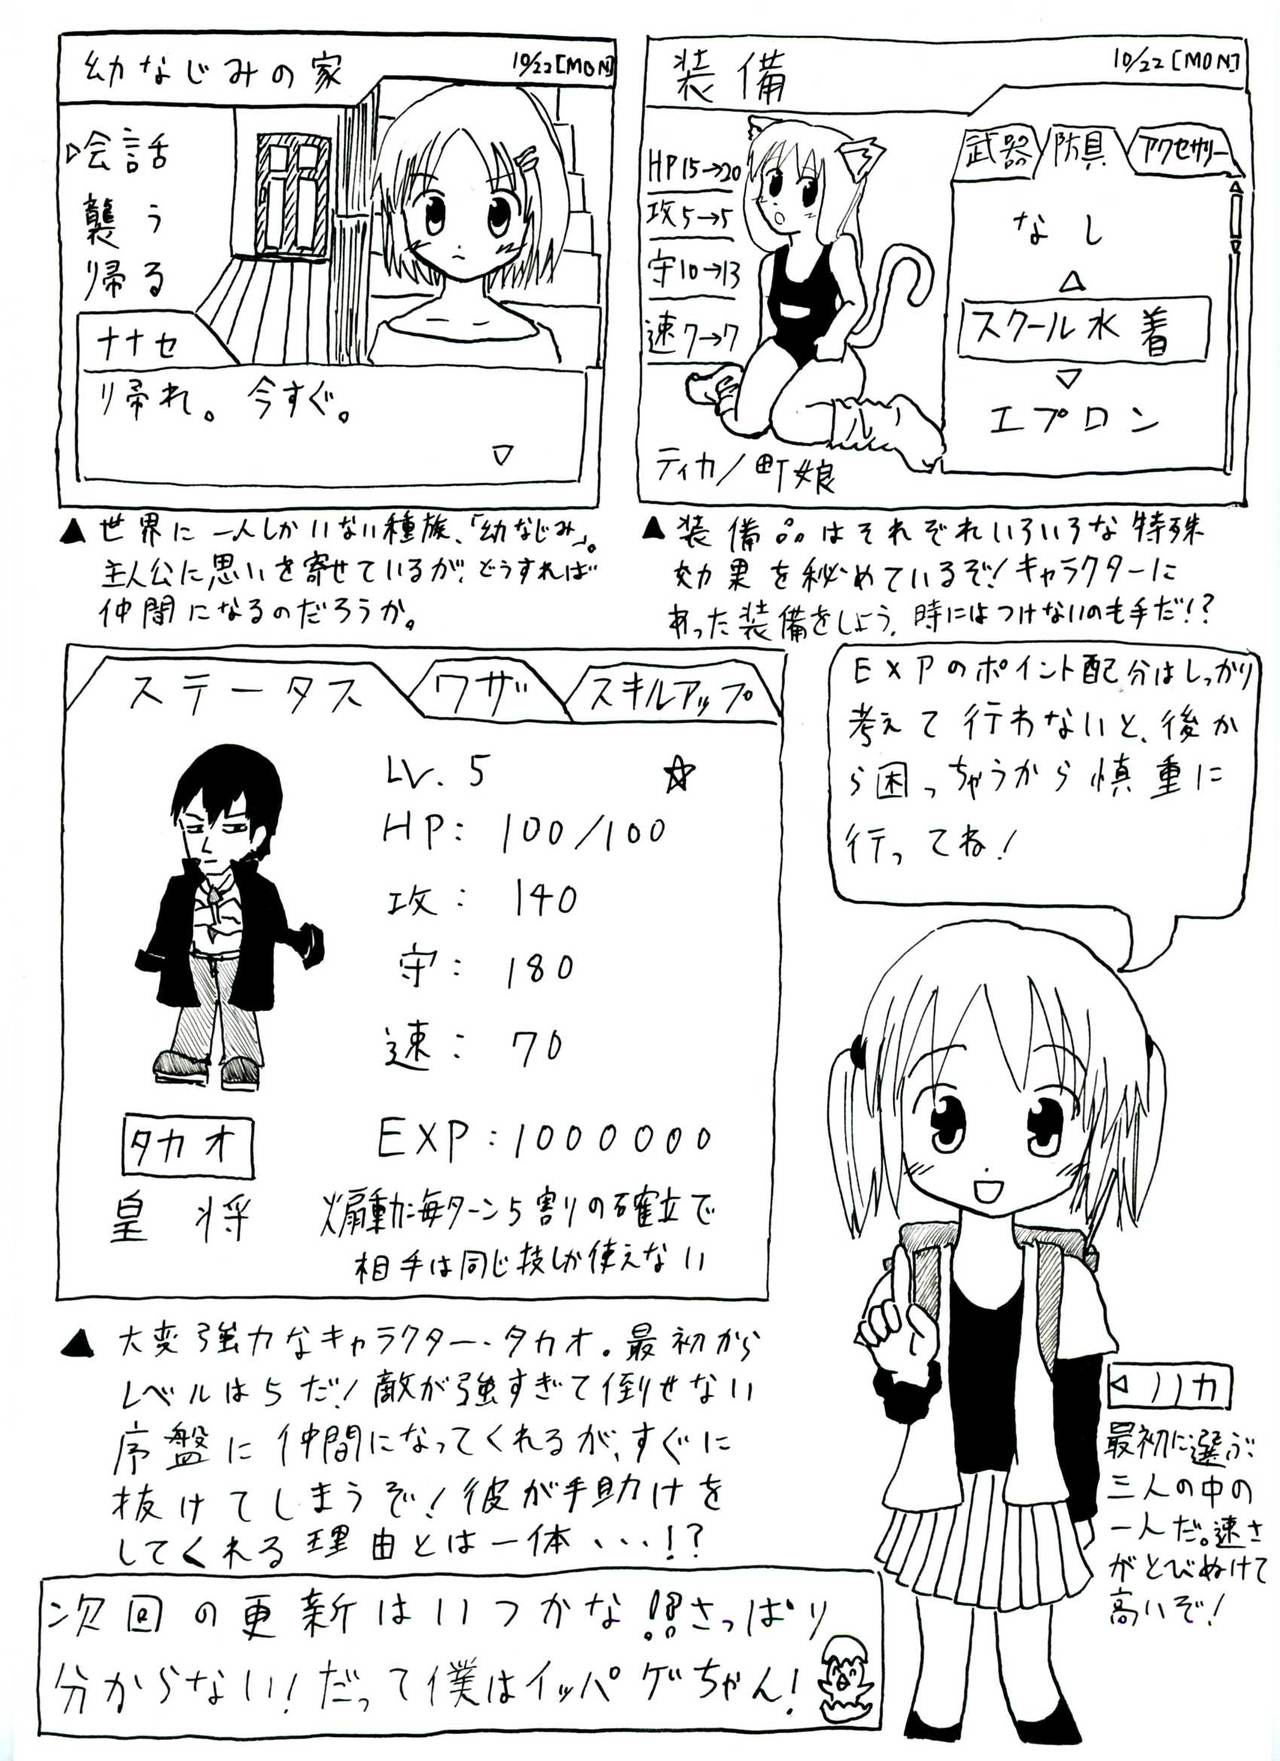 幼なじみの家
10/22[MON]
▷会話
襲う
帰る
ナナセ
帰れ。今すぐ。
▽
▲世界に一人しかいない種族、「幼なじみ」。
主人公に思いを寄せているが、どうすれば
仲間になるのだろうか。
装備
10/22[MON]
HP15→20
攻5→5
守10→13
速7→7
武器 防具 アクセサリー
なし
△
スクール水着
▽
エプロン
ティカ/町娘
▲装備品はそれぞれいろいろな特殊
効果を秘めているぞ!キャラクターに
あった装備をしよう。時にはつけないのも手だ!?
ステータス ワザ スキルアップ
LV.5 ☆
HP: 100/100
攻: 140
守: 180
速: 70
タカオ
EXP:1000000
皇将
煽動:毎ターン5割りの確立で
相手は同じ技しか使えない
EXPのポイント配分はしっかり
考えて行わないと、後か
ら困っちゃうから慎重に
行ってね!
▲大変強力なキャラクター・タカオ。最初から
レベルは5だ!敵が強すぎて倒せない
序盤に仲間になってくれるが、すぐに
抜けてしまうぞ!彼が手助けを
してくれる理由とは一体...!?
◁ノノカ
最初に選ぶ
三人の中の
一人だ。速さ
がとびぬけて
高いぞ!
次回の更新はいつかな!?さっぱり
分からない!だって僕はイッパゲちゃん!